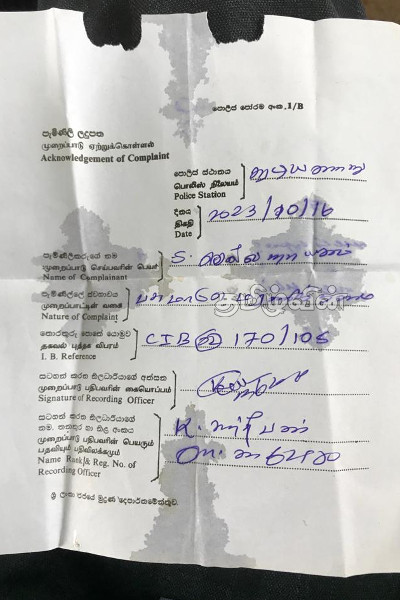 පොලිස් පෝරම අංක. 1/B
පැමිණිලි ලදුපත
முறைப்பாடு ஏற்றுக்கொள்ளல்
Acknowledgement of Complaint
පොලිස් ස්ථානය
பொலிஸ் நிலையம்
Police Station
දිනය
திகதி
Date
2023/10/16
පැමිණිලිකරුගේ නම
முறைப்பாடு செய்பவரின் பெயர்
Name of Complainant
S.
පැමිණිල්ලේ ස්වභාවය
முறைப்பாட்டின் வகை
Nature of Complaint
தமிழ்வின்
තොරතුරු පොතේ යොමුව
தகவல் புத்தக விபரம்
I. B. Reference
CIB 170/105
සටහන් කරන නිලධාරියාගේ අත්සන
முறைப்பாடு பதிபவரின் கையொப்பம்
Signature of Recording Officer
සටහන් කරන නිලධාරියාගේ
නම, තනතුර හා නිල අංකය
முறைப்பாடு பதிபவரின் பெயரும்
பதவியும் பதிவிலக்கமும்
Name Rank & Reg. No. of
Recording Officer
K.
ශ්‍රී ලංකා රජයේ මුද්‍රණ දෙපාර්තමේන්තුව.